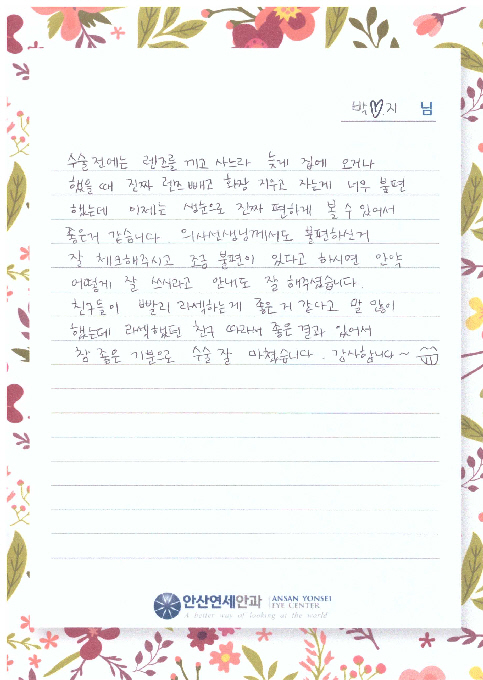 박♡지 님
수술 전에는 렌즈를 끼고 사느라 늦게 집에 오거나
했을 때 진짜 렌즈 빼고 화장 지우고 자는게 너무 불편
했는데 이제는 생눈으로 진짜 편하게 볼 수 있어서
좋은거 같습니다. 의사선생님께서도 불편하신거
잘 체크해주시고 조금 불편이 있다고 하시면 안약
어떻게 잘 쓰시라고 안내도 잘 해주셨습니다.
친구들이 빨리 라섹하는게 좋은 거 같다고 말 많이
했는데 라섹했던 친구 따라서 좋은 결과 있어서
참 좋은 기분으로 수술 잘 마쳤습니다. 감사합니다~
안산연세안과 ANSAN YONSEI EYE CENTER
A better way of looking at the world